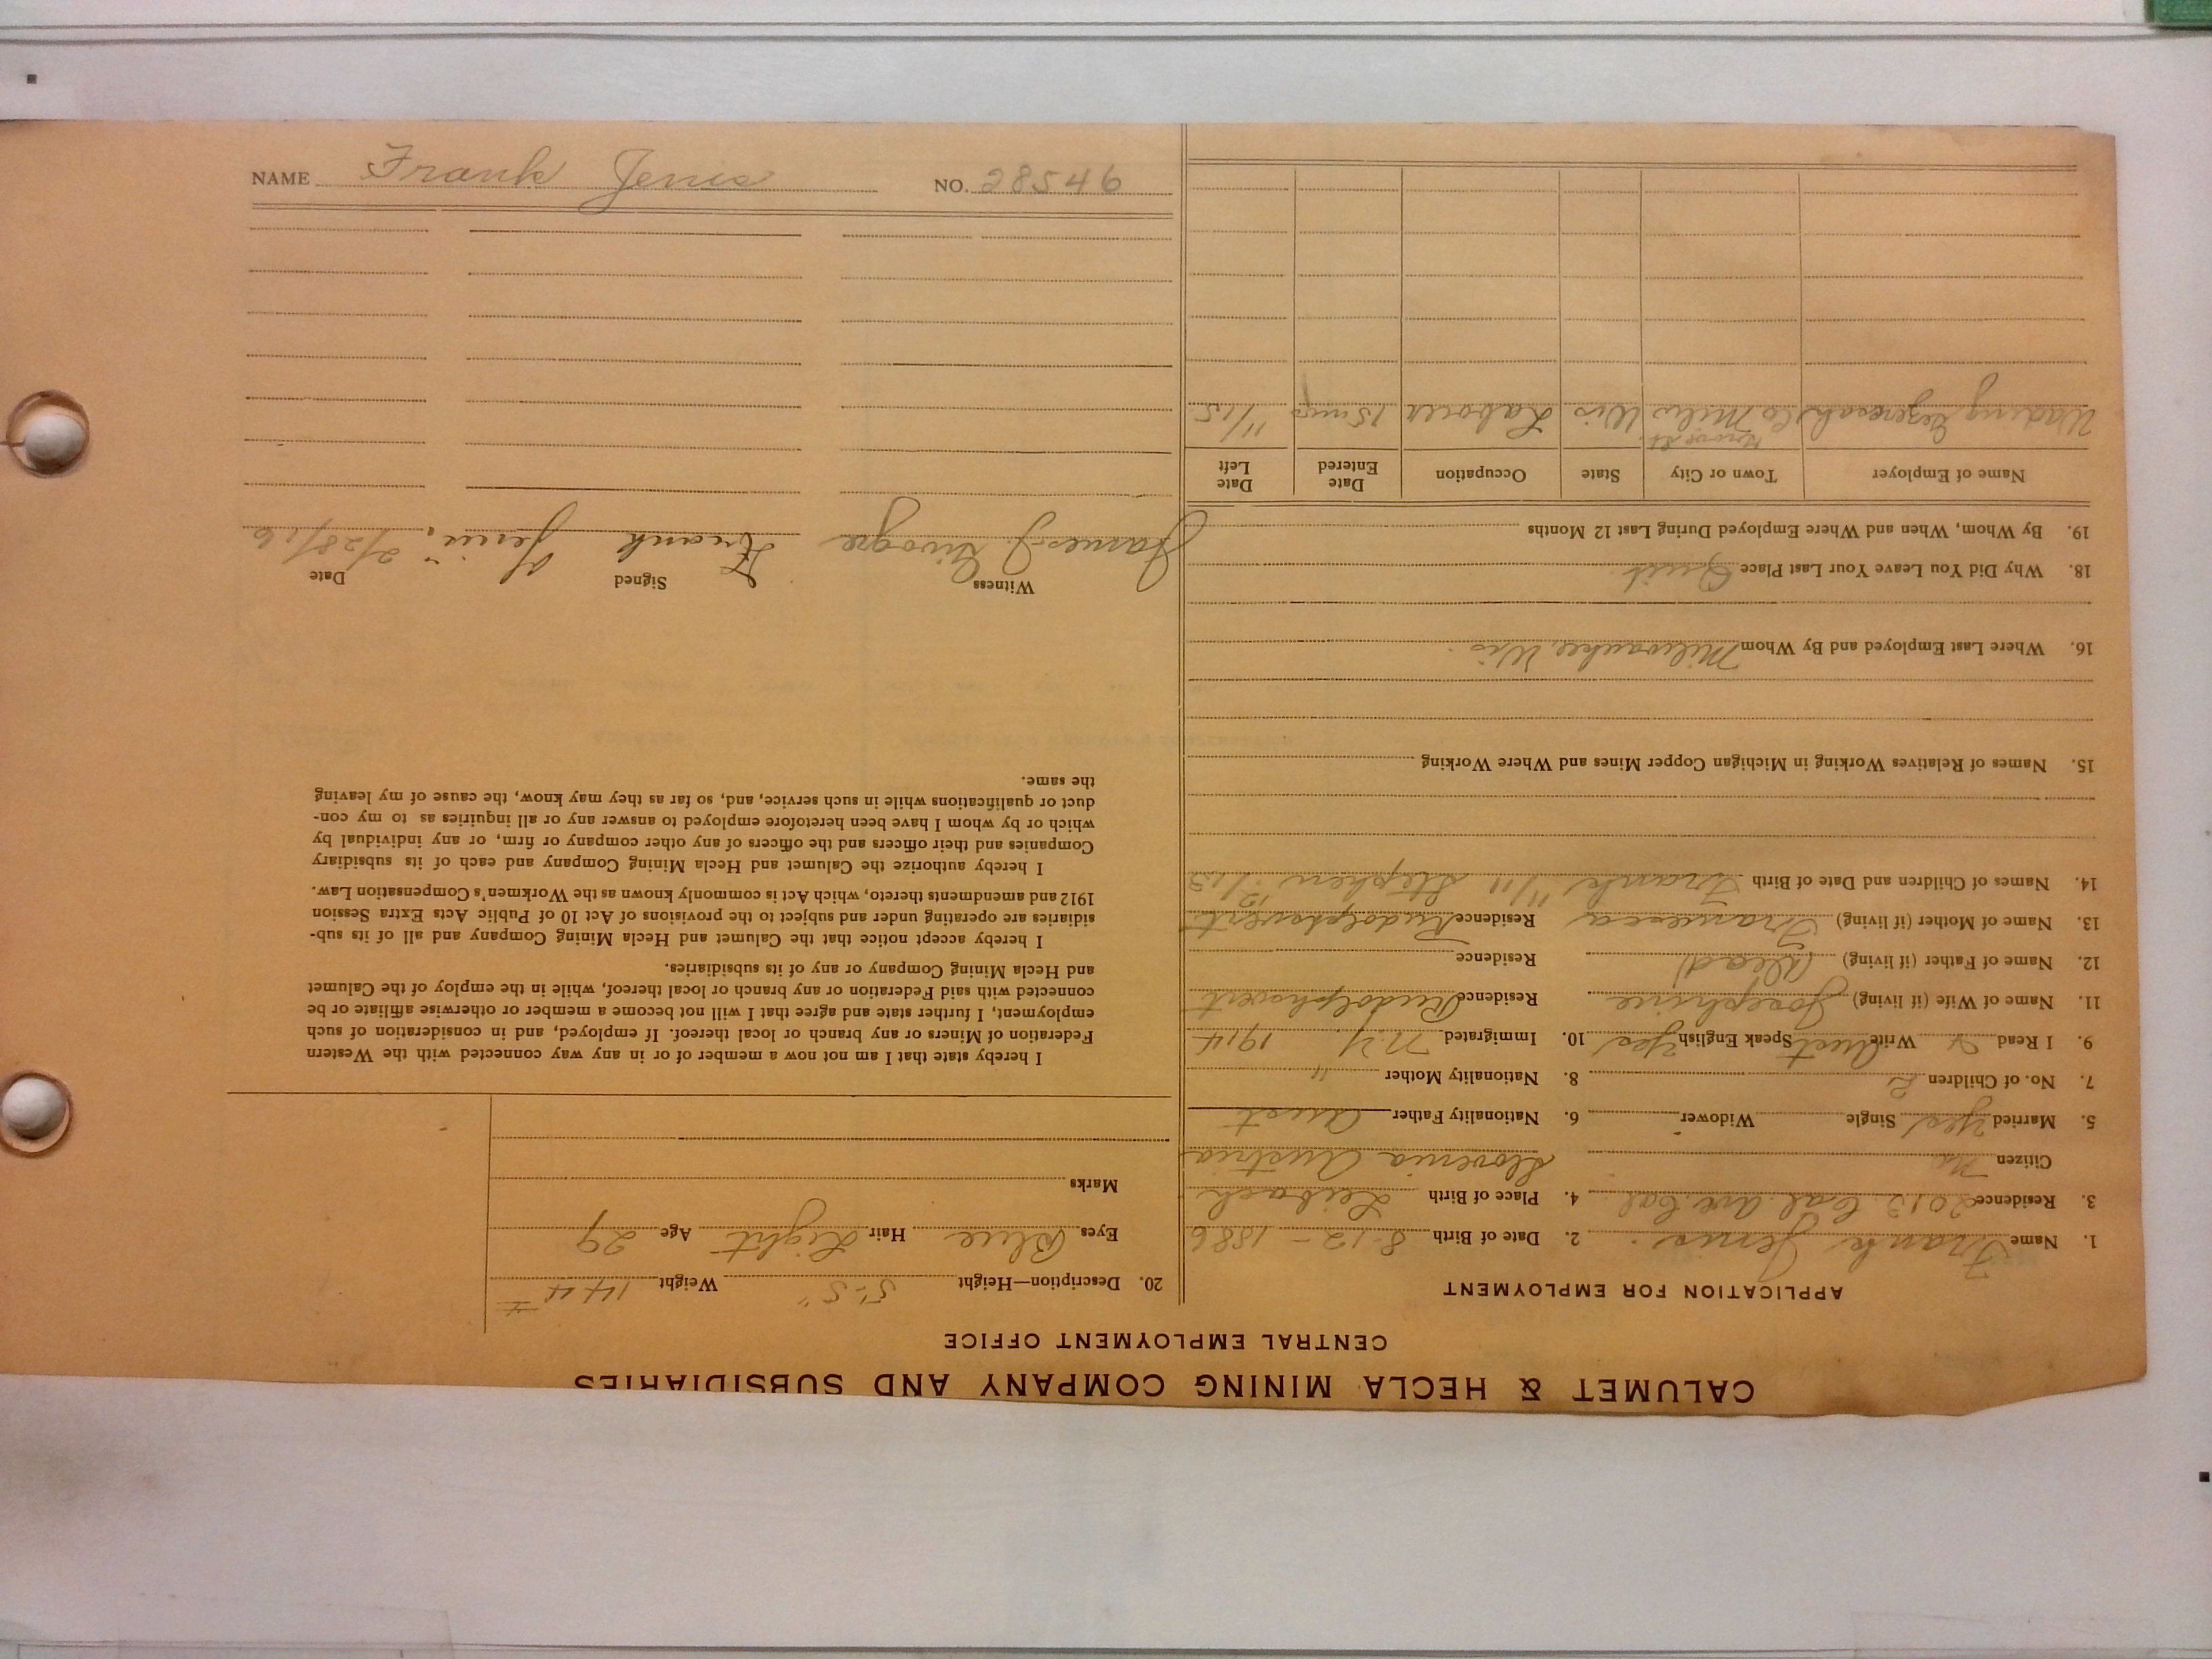 CALUMET & HECLA MINING COMPANY AND SUBSIDIARIES
CENTRAL EMPLOYMENT OFFICE
APPLICATION FOR EMPLOYMENT
1. Name Frank Jenis. 2. Date of Birth 8-12-1886
3. Residence 2013 Cal. ave. Cal 4. Place of Birth Leibach
Citizen No Slovenia Austria
5. Married Yes Single Widower 6. Nationality Father Aust
7. No. of Children 2 8. Nationality Mother "
9. I Read Write Aust Speak English Yes 10. Immigrated N.Y. 1914
11. Name of Wife (if living) Josephine Residence Rudolphswert
12. Name of Father (if living) (dead) Residence
13. Name of Mother (if living) Francesca Residence Rudolphswert
14. Names of Children and Date of Birth Frank 11/11 Stephen 12/13
15. Names of Relatives Working in Michigan Copper Mines and Where Working
16. Where Last Employed and By Whom Milwaukee, Wis.
18. Why Did You Leave Your Last Place Quit.
19. By Whom, When and Where Employed During Last 12 Months
Name of Employer Town or City State Occupation Date Entered Date Left
Co Milw Wis Laborer 15 mos 11/15
20. Description—Height 5'-5" Weight 144 #
Eyes Blue Hair Light Age 29
Marks
I hereby state that I am not now a member of or in any way connected with the Western
Federation of Miners or any branch or local thereof. If employed, and in consideration of such
employment, I further state and agree that I will not become a member or otherwise affiliate or be
connected with said Federation or any branch or local thereof, while in the employ of the Calumet
and Hecla Mining Company or any of its subsidiaries.
I hereby accept notice that the Calumet and Hecla Mining Company and all of its sub-
sidiaries are operating under and subject to the provisions of Act 10 of Public Acts Extra Session
1912 and amendments thereto, which Act is commonly known as the Workmen's Compensation Law.
I hereby authorize the Calumet and Hecla Mining Company and each of its subsidiary
Companies and their officers and the officers of any other company or firm, or any individual by
which or by whom I have been heretofore employed to answer any or all inquiries as to my con-
duct or qualifications while in such service, and, so far as they may know, the cause of my leaving
the same.
Witness Signed Date
James J Frank Jenis, 2/28/16
NAME Frank Jenis NO. 28546